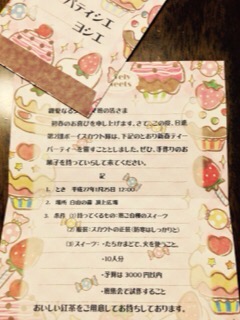 パティシエ
ヨシエ
親愛なる
初春のお喜びを申し上げます。さて、この度、日進
第2団ボーイスカウト隊は、下記のとおり新春ティー
パーティーを催すこととしました。ぜひ、手作りのお
菓子を持っていらして来てください。
記
1. とき 平成27年1月25日 12:00
2. 場所
3. 条件 (1) 持ってくるもの: 班ご自慢のスイーツ
(2) 服装: スカウトの正装(防寒はしっかりと)
(3) スイーツ:・たちかまどで、火を使うこと。
・10人分
・予算は 3000 円以内
・班集会で試作すること
おいしい紅茶をご用意してお待ちしております。